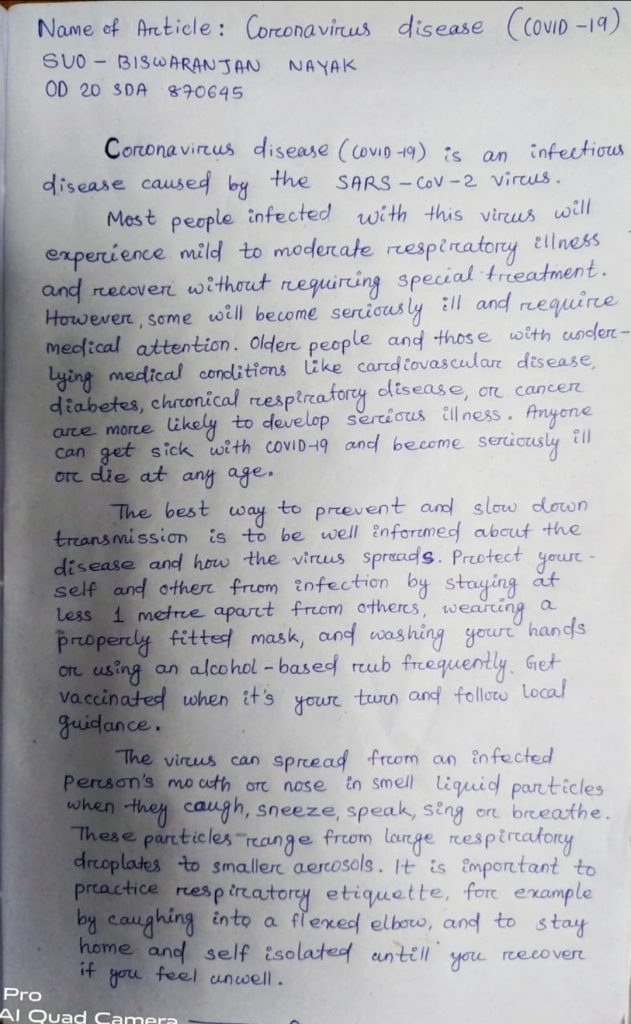 Name of Article: Coronavirus disease (COVID-19)
SUO - BISWARANJAN NAYAK
OD 20 SDA 870645
Coronavirus disease (COVID-19) is an infectious
disease caused by the SARS-CoV-2 virus.
Most people infected with this virus will
experience mild to moderate respiratory illness
and recover without requiring special treatment.
However, some will become seriously ill and require
medical attention. Older people and those with under-
lying medical conditions like cardiovascular disease,
diabetes, chronical respiratory disease, or cancer
are more likely to develop serious illness. Anyone
can get sick with COVID-19 and become seriously ill
or die at any age.
The best way to prevent and slow down
transmission is to be well informed about the
disease and how the virus spreads. Protect your-
self and other from infection by staying at
less 1 metre apart from others, wearing a
properly fitted mask, and washing your hands
or using an alcohol-based rub frequently. Get
vaccinated when it's your turn and follow local
guidance.
The virus can spread from an infected
person's mouth or nose in smell liquid particles
when they caugh, sneeze, speak, sing or breathe.
These particles range from large respiratory
droplates to smaller aerosols. It is important to
practice respiratory etiquette, for example
by caughing into a flexed elbow, and to stay
home and self isolated untill you recover
if you feel unwell.
Pro
AI Quad Camera